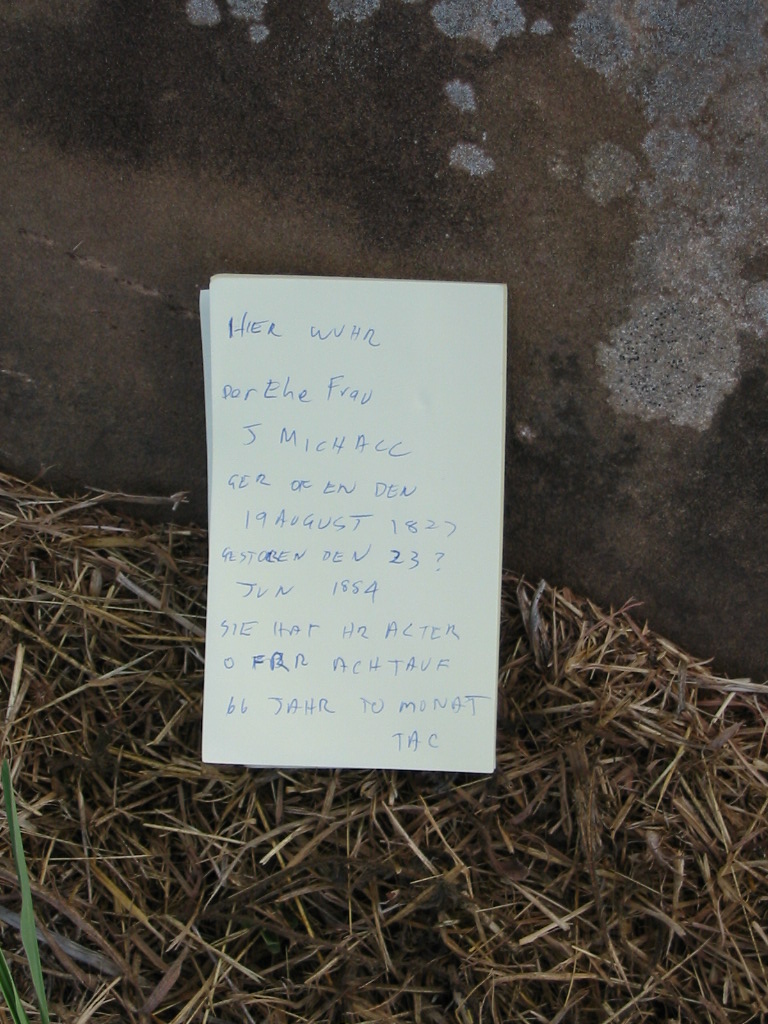 HIER WUHR
Dar Ehe Frau
J MICHACC
GER OF EN DEN
19 AUGUST 1827
GESTOREN DEN 23 ?
JUN 1884
SIE HAT HR ACTER
O FRR ACHTAUF
66 JAHR TO MONAT
TAC